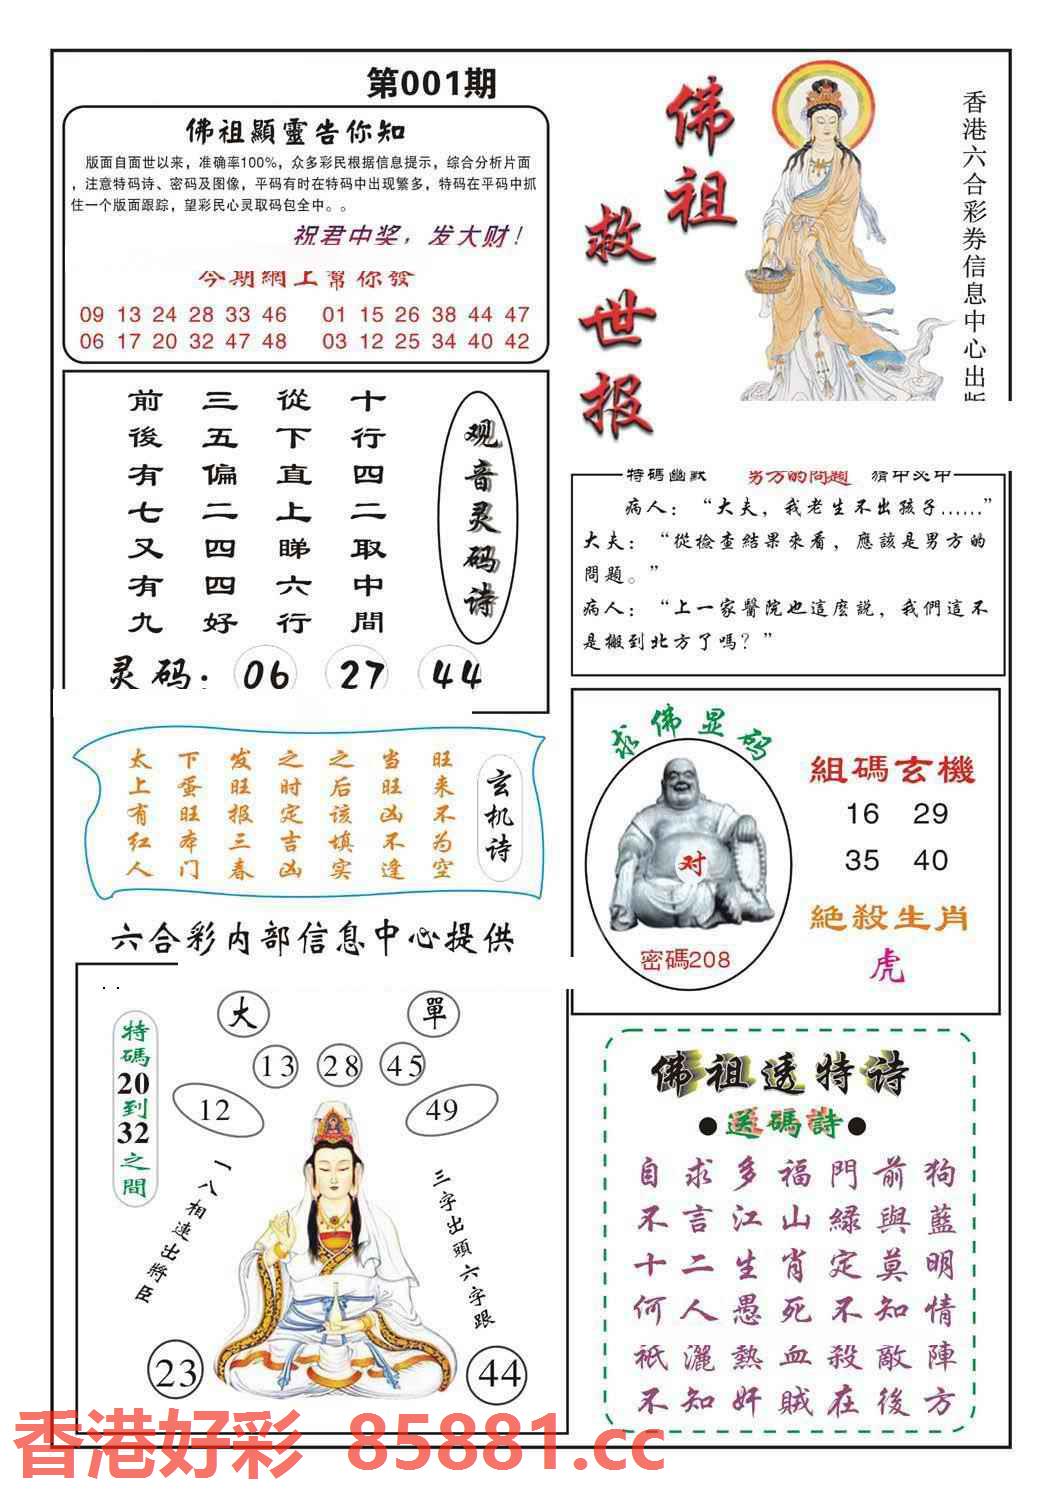 第001期
佛祖顯靈告你知
版面自面世以来，准确率100%，众多彩民根据信息提示，综合分析片面
，注意特码诗、密码及图像，平码有时在特码中出现繁多，特码在平码中抓
住一个版面跟踪，望彩民心灵取码包全中。。
祝君中奖，发大财！
今期網上幫你發
09 13 24 28 33 46 01 15 26 38 44 47
06 17 20 32 47 48 03 12 25 34 40 42
佛祖
救世报
香港六合彩券信息中心出版
观音灵码诗
十行四二取中間
從下直上睇六行
三五偏二四四好
前後有七又有九
灵码：06 27 44
特碼幽默 男方的問題 猜中必中
病人：“大夫，我老生不出孩子……”
大夫：“從檢查結果來看，應該是男方的
問題。”
病人：“上一家醫院也這麼説，我們這不
是搬到北方了嗎？”
玄机诗
旺来不为空
当旺凶不逢
之后该填实
之时定吉凶
发旺报三春
下蛋旺本门
太上有红人
求佛显码
对
密碼208
組碼玄機
16 29
35 40
絕殺生肖
虎
六合彩内部信息中心提供
特碼20到32之間
大 單
13 28 45
12 49
一八相連出將臣
三字出頭六字跟
23 44
佛祖透特诗
●送碼詩●
自求多福門前狗
不言江山緑與藍
十二生肖定莫明
何人愚死不知情
祇灑熱血殺敵陣
不知奸賊在後方
香港好彩 85881.cc